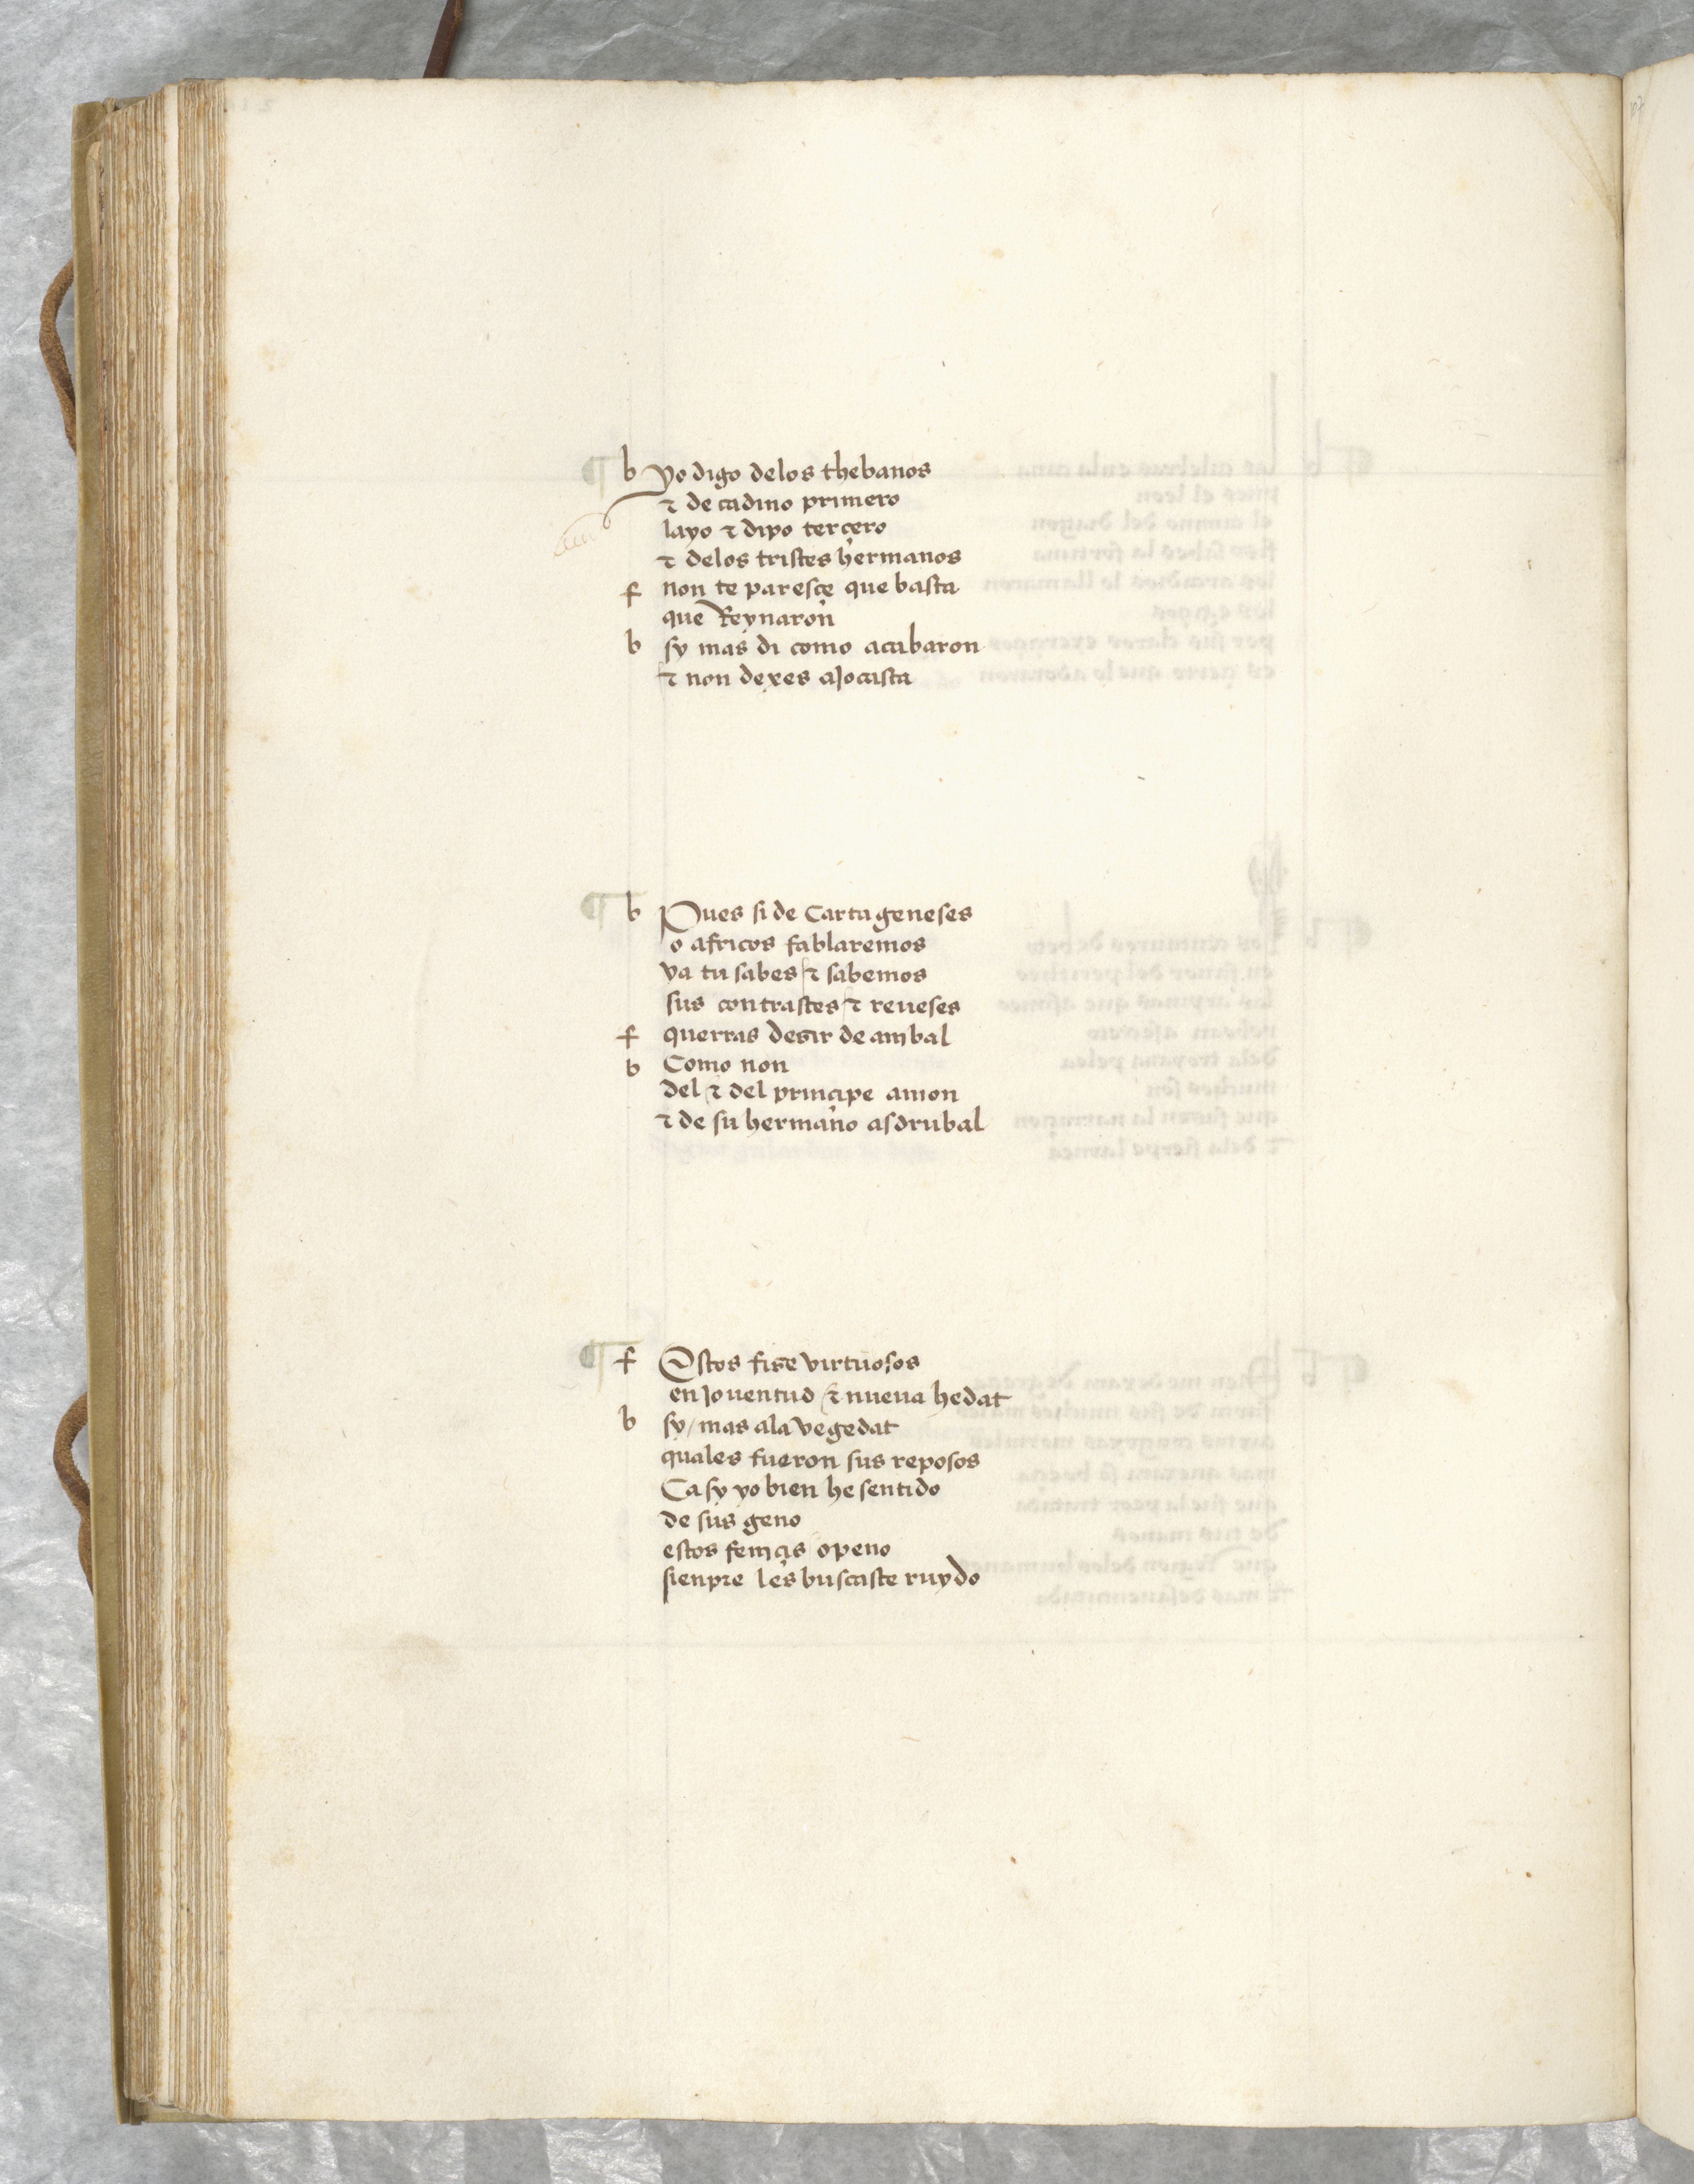 ¶ b yo digo delos thebanos
⁊ de cadmo primero
layo ⁊ dipo terçero
⁊ delos tristes hermanos
f non te paresçe que basta
que Reynaron
b sy mas di como acabaron
⁊ non dexes aJocasta
¶ b Pues si de Cartageneses
o africos fablaremos
ya tu sabes ⁊ sabemos
sus contrastes ⁊ reueses
f querras desir de anibal
b Como non
del ⁊ del prinçipe amon
⁊ de su hermano asdrubal
¶ f Estos fise virtuosos
en Jouentud ⁊ nueua hedat
b sy / mas ala vegedat
quales fueron sus reposos
Ca sy yo bien he sentido
de sus geno
estos feniçis o peno
sienpre les buscaste ruydo